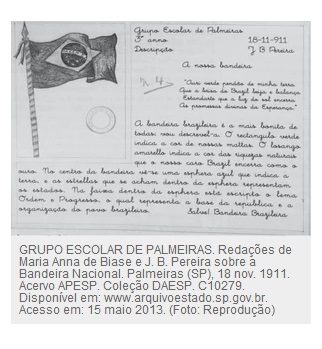 Grupo Escolar de Palmeiras
3º anno 18-11-911
Descripção J B Pereira
A nossa bandeira
"Auri verde pendão de minha terra
Que a brisa do Brazil beija e balança
Estandarte que a luz do sol encerra
As promessas divinas da Esperança"
A bandeira brazileira é a mais bonita de
todas: vou descrevel-a. O rectangulo verde
indica a cor de nossas mattas. O losango
amarello indica a cor das riquezas naturaes
que o nosso caro Brazil encerra como o
ouro. No centro da bandeira vê-se uma esphera azul que indica a
terra, e as estrellas que se acham dentro da esphera representam
os estados. Na faixa dentro da esphera está escripto o lema
Ordem e Progresso, o qual representa a base da republica e a
organização do povo brazileiro. Salve! Bandeira Brazileira
GRUPO ESCOLAR DE PALMEIRAS. Redações de
Maria Anna de Biase e J. B. Pereira sobre a
Bandeira Nacional. Palmeiras (SP), 18 nov. 1911.
Acervo APESP. Coleção DAESP. C10279.
Disponível em: www.arquivoestado.sp.gov.br.
Acesso em: 15 maio 2013. (Foto: Reprodução)